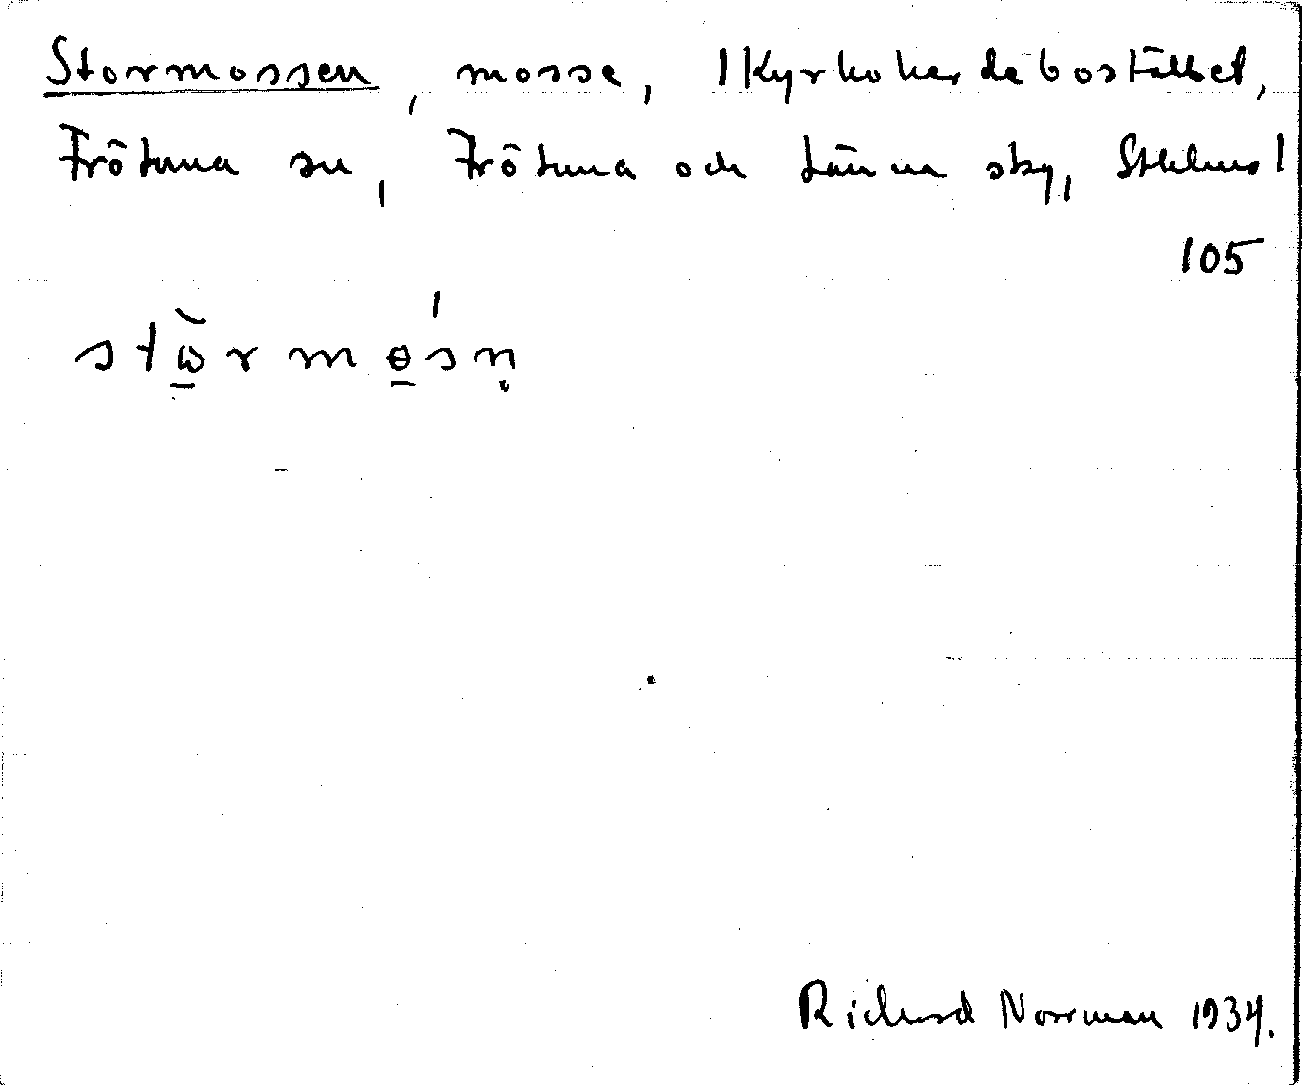 Stormossen, mosse, 1 Kyrkoherdebostället,
Frötuna sn, Frötuna och Länna skg, Sthlms l
105
stὼ̠r mɵ̠śṇ
Richard Norrman 1934.